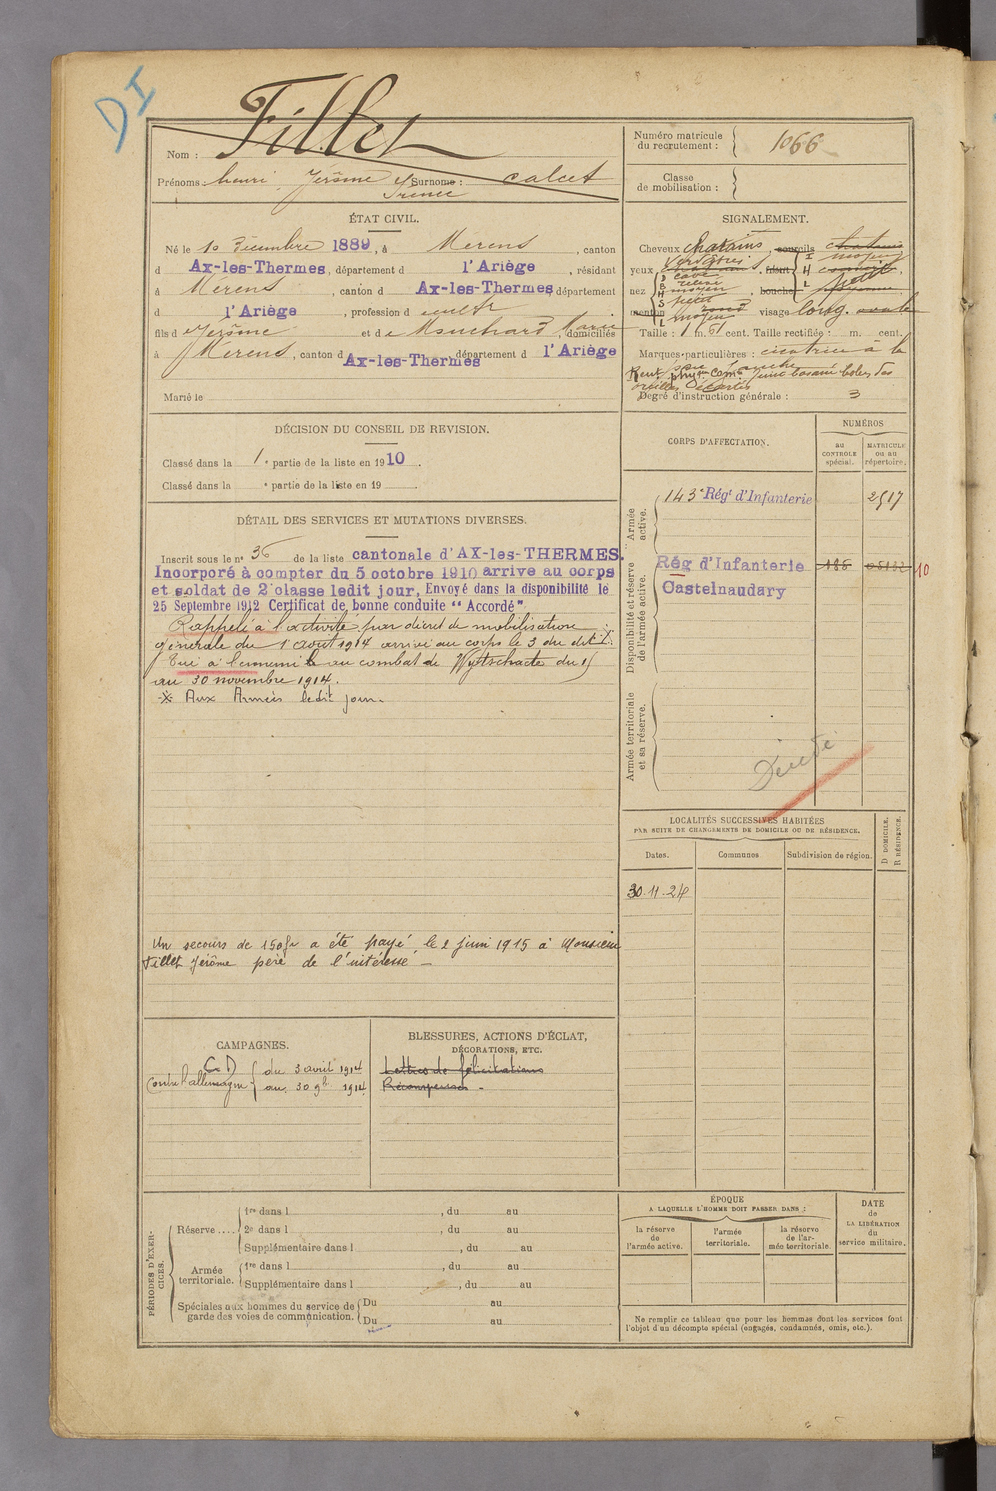 DI
Nom : Fillet
Prénoms : henri Jérôme Irénée Surnoms : calcet
Numéro matricule du recrutement : 1066
Classe de mobilisation :
ÉTAT CIVIL.
Né le 10 Décembre 1889, à Mérens, canton
d Ax-les-Thermes, département d l'Ariège, résidant
à Mérens, canton d Ax-les-Thermes département
d l'Ariège, profession d cultr
fils d Jérôme et de Marie domiciliés
à Mérens, canton d Ax-les-Thermes département d l'Ariège
Marié le
SIGNALEMENT.
Cheveux chatains, sourcils chatains
yeux verdâtres, front
nez, bouche
menton rond visage long. ovale
Taille : 1 m. 61 cent. Taille rectifiée : m. cent.
Marques particulières : cicatrice à la
joue gauche
Degré d'instruction générale : 3
DÉCISION DU CONSEIL DE REVISION.
Classé dans la 1e partie de la liste en 1910.
Classé dans la e partie de la liste en 19
CORPS D'AFFECTATION.
NUMÉROS
au CONTROLE spécial.
MATRICULE ou au répertoire.
Armée active.
143e Régt d'Infanterie 2517
Disponibilité et réserve de l'armée active.
Rég d'Infanterie
Castelnaudary
10
Armée territoriale et sa réserve.
Décédé
DÉTAIL DES SERVICES ET MUTATIONS DIVERSES.
Inscrit sous le n° 36 de la liste cantonale d'AX-les-THERMES.
Incorporé à compter du 5 octobre 1910 arrive au corps
et soldat de 2e classe ledit jour, Envoyé dans la disponibilité le
25 Septembre 1912 Certificat de bonne conduite "Accordé"
Rappelé à l'activité par décret de mobilisation
générale du 1 août 1914 arrivé au corps le 3 du dit
Tué à l'ennemi au combat de Wytschaete du 15
au 30 novembre 1914.
Aux Armées ledit jour.
Un secours de 150fr a été payé le 2 juin 1915 à Monsieur
Fillet Jérôme père de l'intéressé
LOCALITÉS SUCCESSIVES HABITÉES
PAR SUITE DE CHANGEMENTS DE DOMICILE OU DE RÉSIDENCE.
Dates. Communes Subdivision de région. D DOMICILE. R RÉSIDENCE.
30.11.24
CAMPAGNES.
CD
Contre l'allemagne du 3 avril 1914
au 30 9b 1914
BLESSURES, ACTIONS D'ÉCLAT,
DÉCORATIONS, ETC.
Lettres de félicitations
Récompenses
PÉRIODES D'EXERCICES.
Réserve ....
1re dans l , du au
2e dans l , du au
Supplémentaire dans l , du au
Armée territoriale.
1re dans l , du au
Supplémentaire dans l , du au
Spéciales aux hommes du service de garde des voies de communication.
Du au
Du au
ÉPOQUE
A LAQUELLE L'HOMME DOIT PASSER DANS :
la réserve de l'armée active.
l'armée territoriale.
la réserve de l'armée territoriale.
DATE de LA LIBÉRATION du service militaire.
Ne remplir ce tableau que pour les hommes dont les services font
l'objet d'un décompte spécial (engagés, condamnés, omis, etc.).